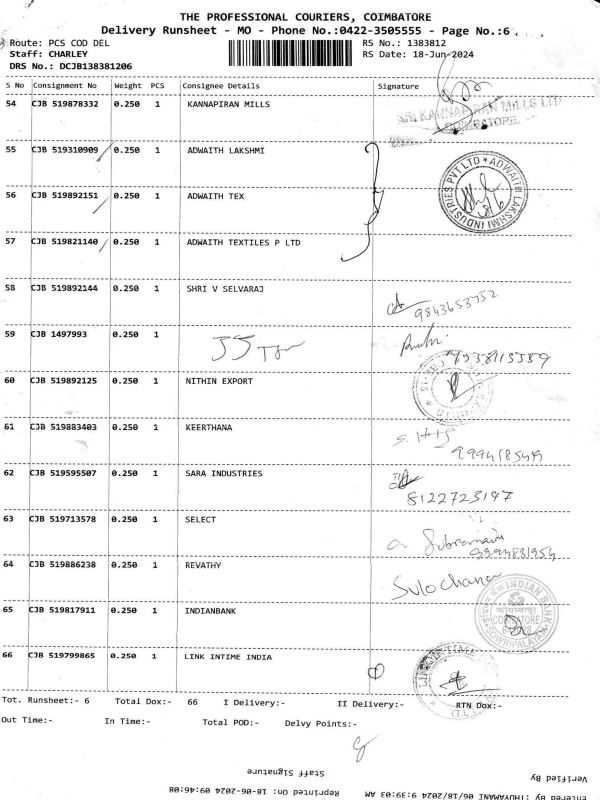 THE PROFESSIONAL COURIERS, COIMBATORE
Delivery Runsheet - MO - Phone No.:0422-3505555 - Page No.:6
Route: PCS COD DEL RS No.: 1383812
Staff: CHARLEY RS Date: 18-Jun-2024
DRS No.: DCJB138381206
S No Consignment No Weight PCS Consignee Details Signature
54 CJB 519878332 0.250 1 KANNAPIRAN MILLS
SRI KANNAPIRAN MILLS LTD
COIMBATORE.
55 CJB 519310909 0.250 1 ADWAITH LAKSHMI
ADWAITH LAKSHMI INDUSTRIES PVT LTD
56 CJB 519892151 0.250 1 ADWAITH TEX
57 CJB 519821140 0.250 1 ADWAITH TEXTILES P LTD
58 CJB 519892144 0.250 1 SHRI V SELVARAJ
9843653752
59 CJB 1497993 0.250 1
60 CJB 519892125 0.250 1 NITHIN EXPORT
61 CJB 519883403 0.250 1 KEERTHANA
62 CJB 519595507 0.250 1 SARA INDUSTRIES
8122723197
63 CJB 519713578 0.250 1 SELECT
9994881954
64 CJB 519886238 0.250 1 REVATHY
Sulochana
65 CJB 519817911 0.250 1 INDIANBANK
INDIAN BANK
COIMBATORE
66 CJB 519799865 0.250 1 LINK INTIME INDIA
Tot. Runsheet:- 6 Total Dox:- 66 I Delivery:- II Delivery:- RTN Dox:-
Out Time:- In Time:- Total POD:- Delvy Points:-
Staff Signature
Verified By
Entered By :THUYAMANI 06/18/2024 9:39:03 AM Reprinted On: 18-06-2024 09:46:08